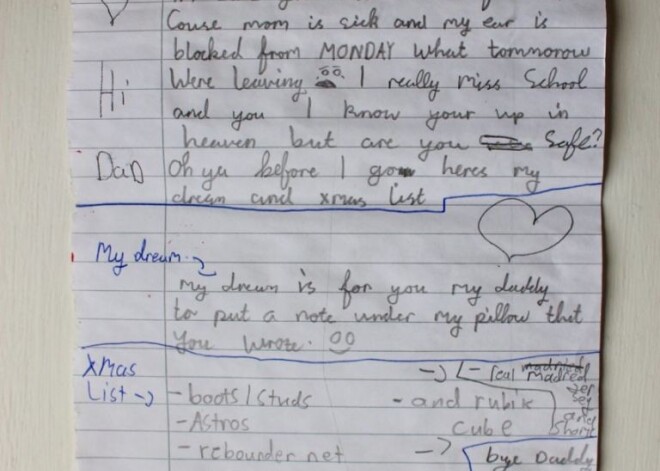 Couse mom is sick and my ear is
blocked from MONDAY what tommorow
Hi Were leaving I really miss School
and you I know your up in
heaven but are you safe?
DaD Oh ya before I go heres my
dream and xmas list
My dream
my dream is for you my daddy
to put a note under my pillow that
you wrote.
Xmas
List
- real madried
madred
jersey
and
shorts
- boots/studs
- and rubix
- Astros
cube
- rebounder net
bye Daddy